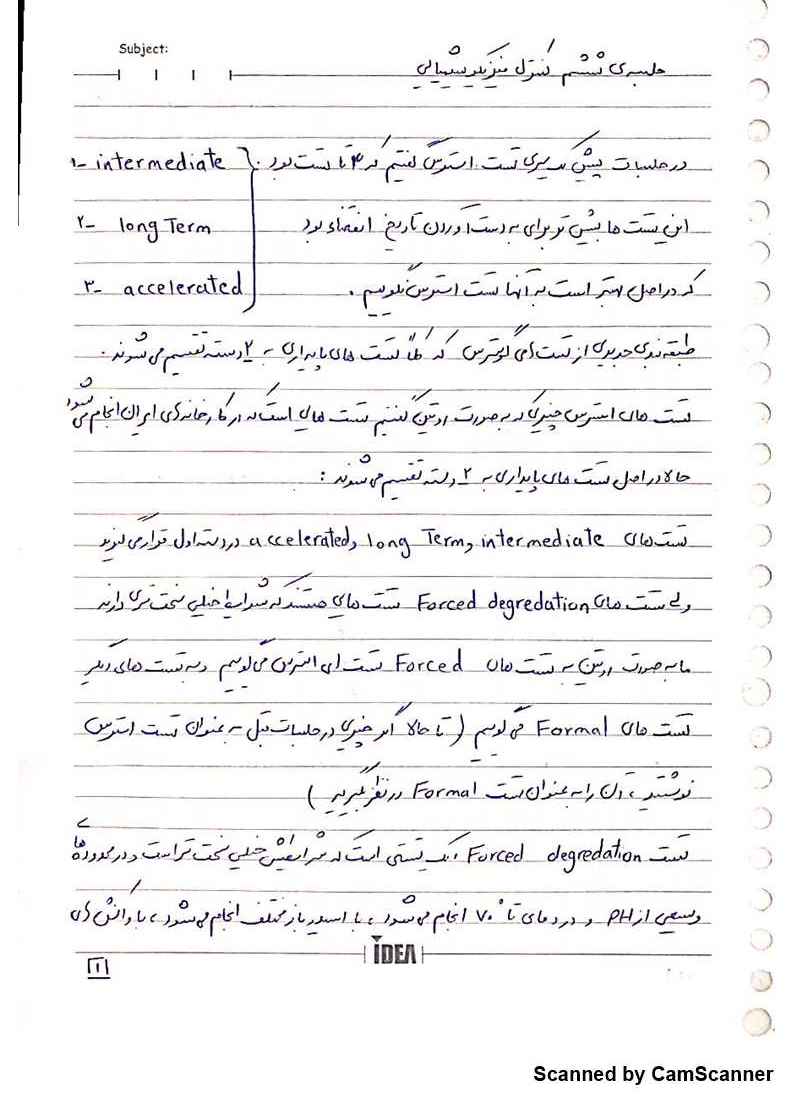 Subject:
جلسه‌ی ششم کنترل فیزیکوشیمیایی
در جلسات پیش یک سری تست استرس گفتیم که ۳ تا تست بود . { ۱- intermediate
این تست ها بیش تر برای به دست آوردن تاریخ انقضاء بود ۲- long Term
که در اصل بهتر است به آنها تست استرس نگوییم . ۳- accelerated
طبقه بندی جدیدی از تست های استرس که کلاً تست های پایداری به ۲ دسته تقسیم می شوند .
تست های استرس چیزی که به صورت روتین گفتیم تست هایی است که در کارخانه های ایران انجام می شود
حالا در اصل تست های پایداری به ۲ دسته تقسیم می شوند :
تست های intermediate و long Term و accelerated در دسته اول قرار می گیرند
ولی تست های Forced degredation تست هایی هستند که شرایط خیلی سخت تری دارند
ما به صورت روتین به تست های Forced تست های استرس می گوییم و به تست های دیگر
تست های Formal می گوییم ( تا حالا اگر چیزی در جلسات قبل به عنوان تست استرس
نوشتید ، آن را به عنوان تست Formal در نظر بگیرید )
تست Forced degredation ، یک تستی است که شرایطش خیلی سخت تر است و در محدوده های
وسیعی از PH و در دمای تا ۷۰° انجام می شود ، با اسید و باز مختلف انجام می شود ، با واکنش های
IDEA
۱
Scanned by CamScanner